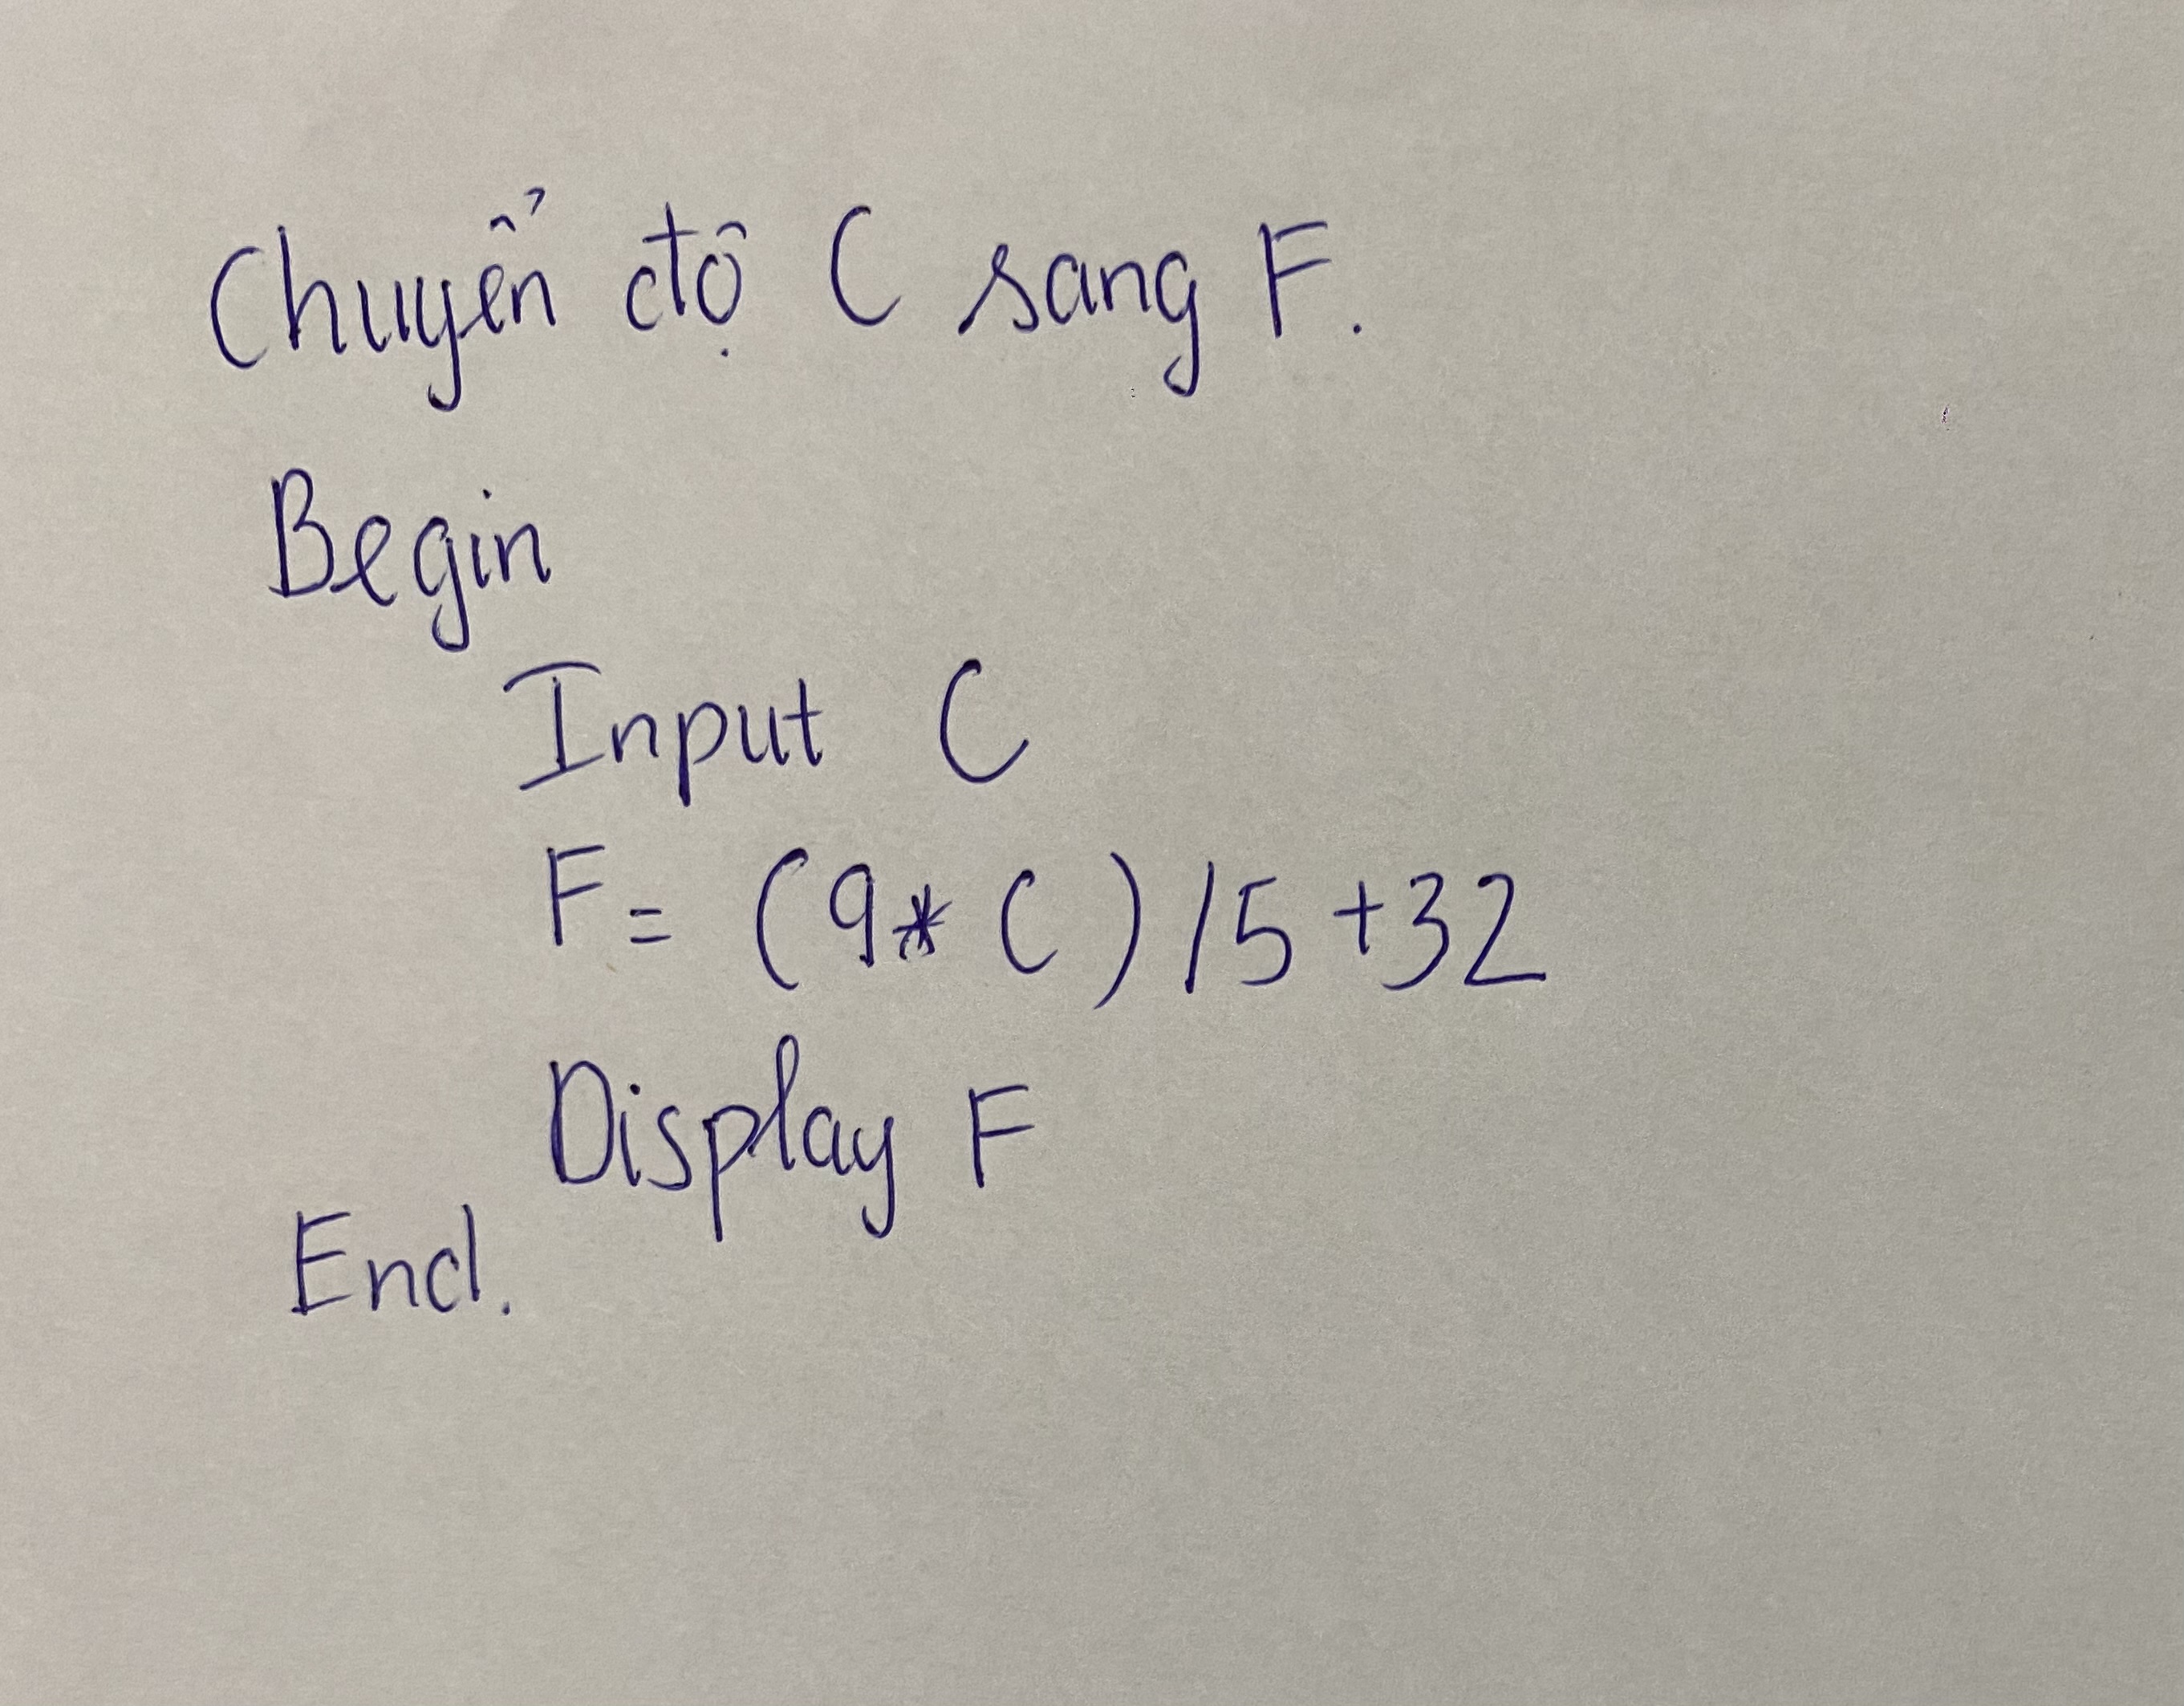 Chuyển độ C sang F.
Begin
Input C
F = (9* C) /5 +32
Display F
End.